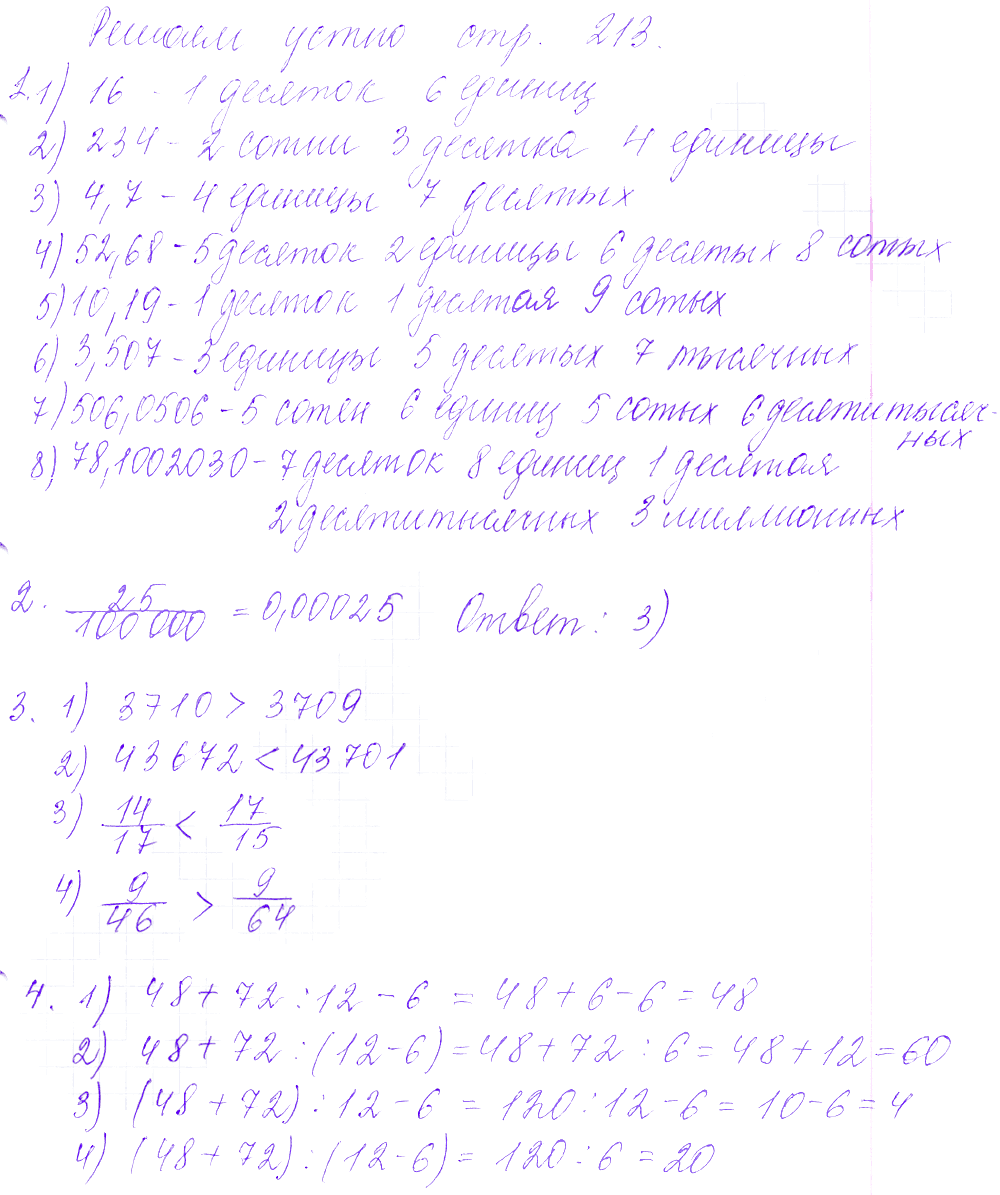 Решаем устно стр. 213.
1. 1) 16 - 1 десяток 6 единиц
2) 234 - 2 сотни 3 десятка 4 единицы
3) 4,7 - 4 единицы 7 десятых
4) 52,68 - 5 десяток 2 единицы 6 десятых 8 сотых
5) 10,19 - 1 десяток 1 десятая 9 сотых
6) 3,507 - 3 единицы 5 десятых 7 тысячных
7) 506,0506 - 5 сотен 6 единиц 5 сотых 6 десятитысяч-
ных
8) 78,1002030 - 7 десяток 8 единиц 1 десятая
2 десятитысячных 3 миллионных
2. 25/100 000 = 0,00025 Ответ: 3)
3. 1) 3710 > 3709
2) 43672 < 43701
3) 14/17 < 17/15
4) 9/46 > 9/64
4. 1) 48 + 72 : 12 - 6 = 48 + 6 - 6 = 48
2) 48 + 72 : (12 - 6) = 48 + 72 : 6 = 48 + 12 = 60
3) (48 + 72) : 12 - 6 = 120 : 12 - 6 = 10 - 6 = 4
4) (48 + 72) : (12 - 6) = 120 : 6 = 20